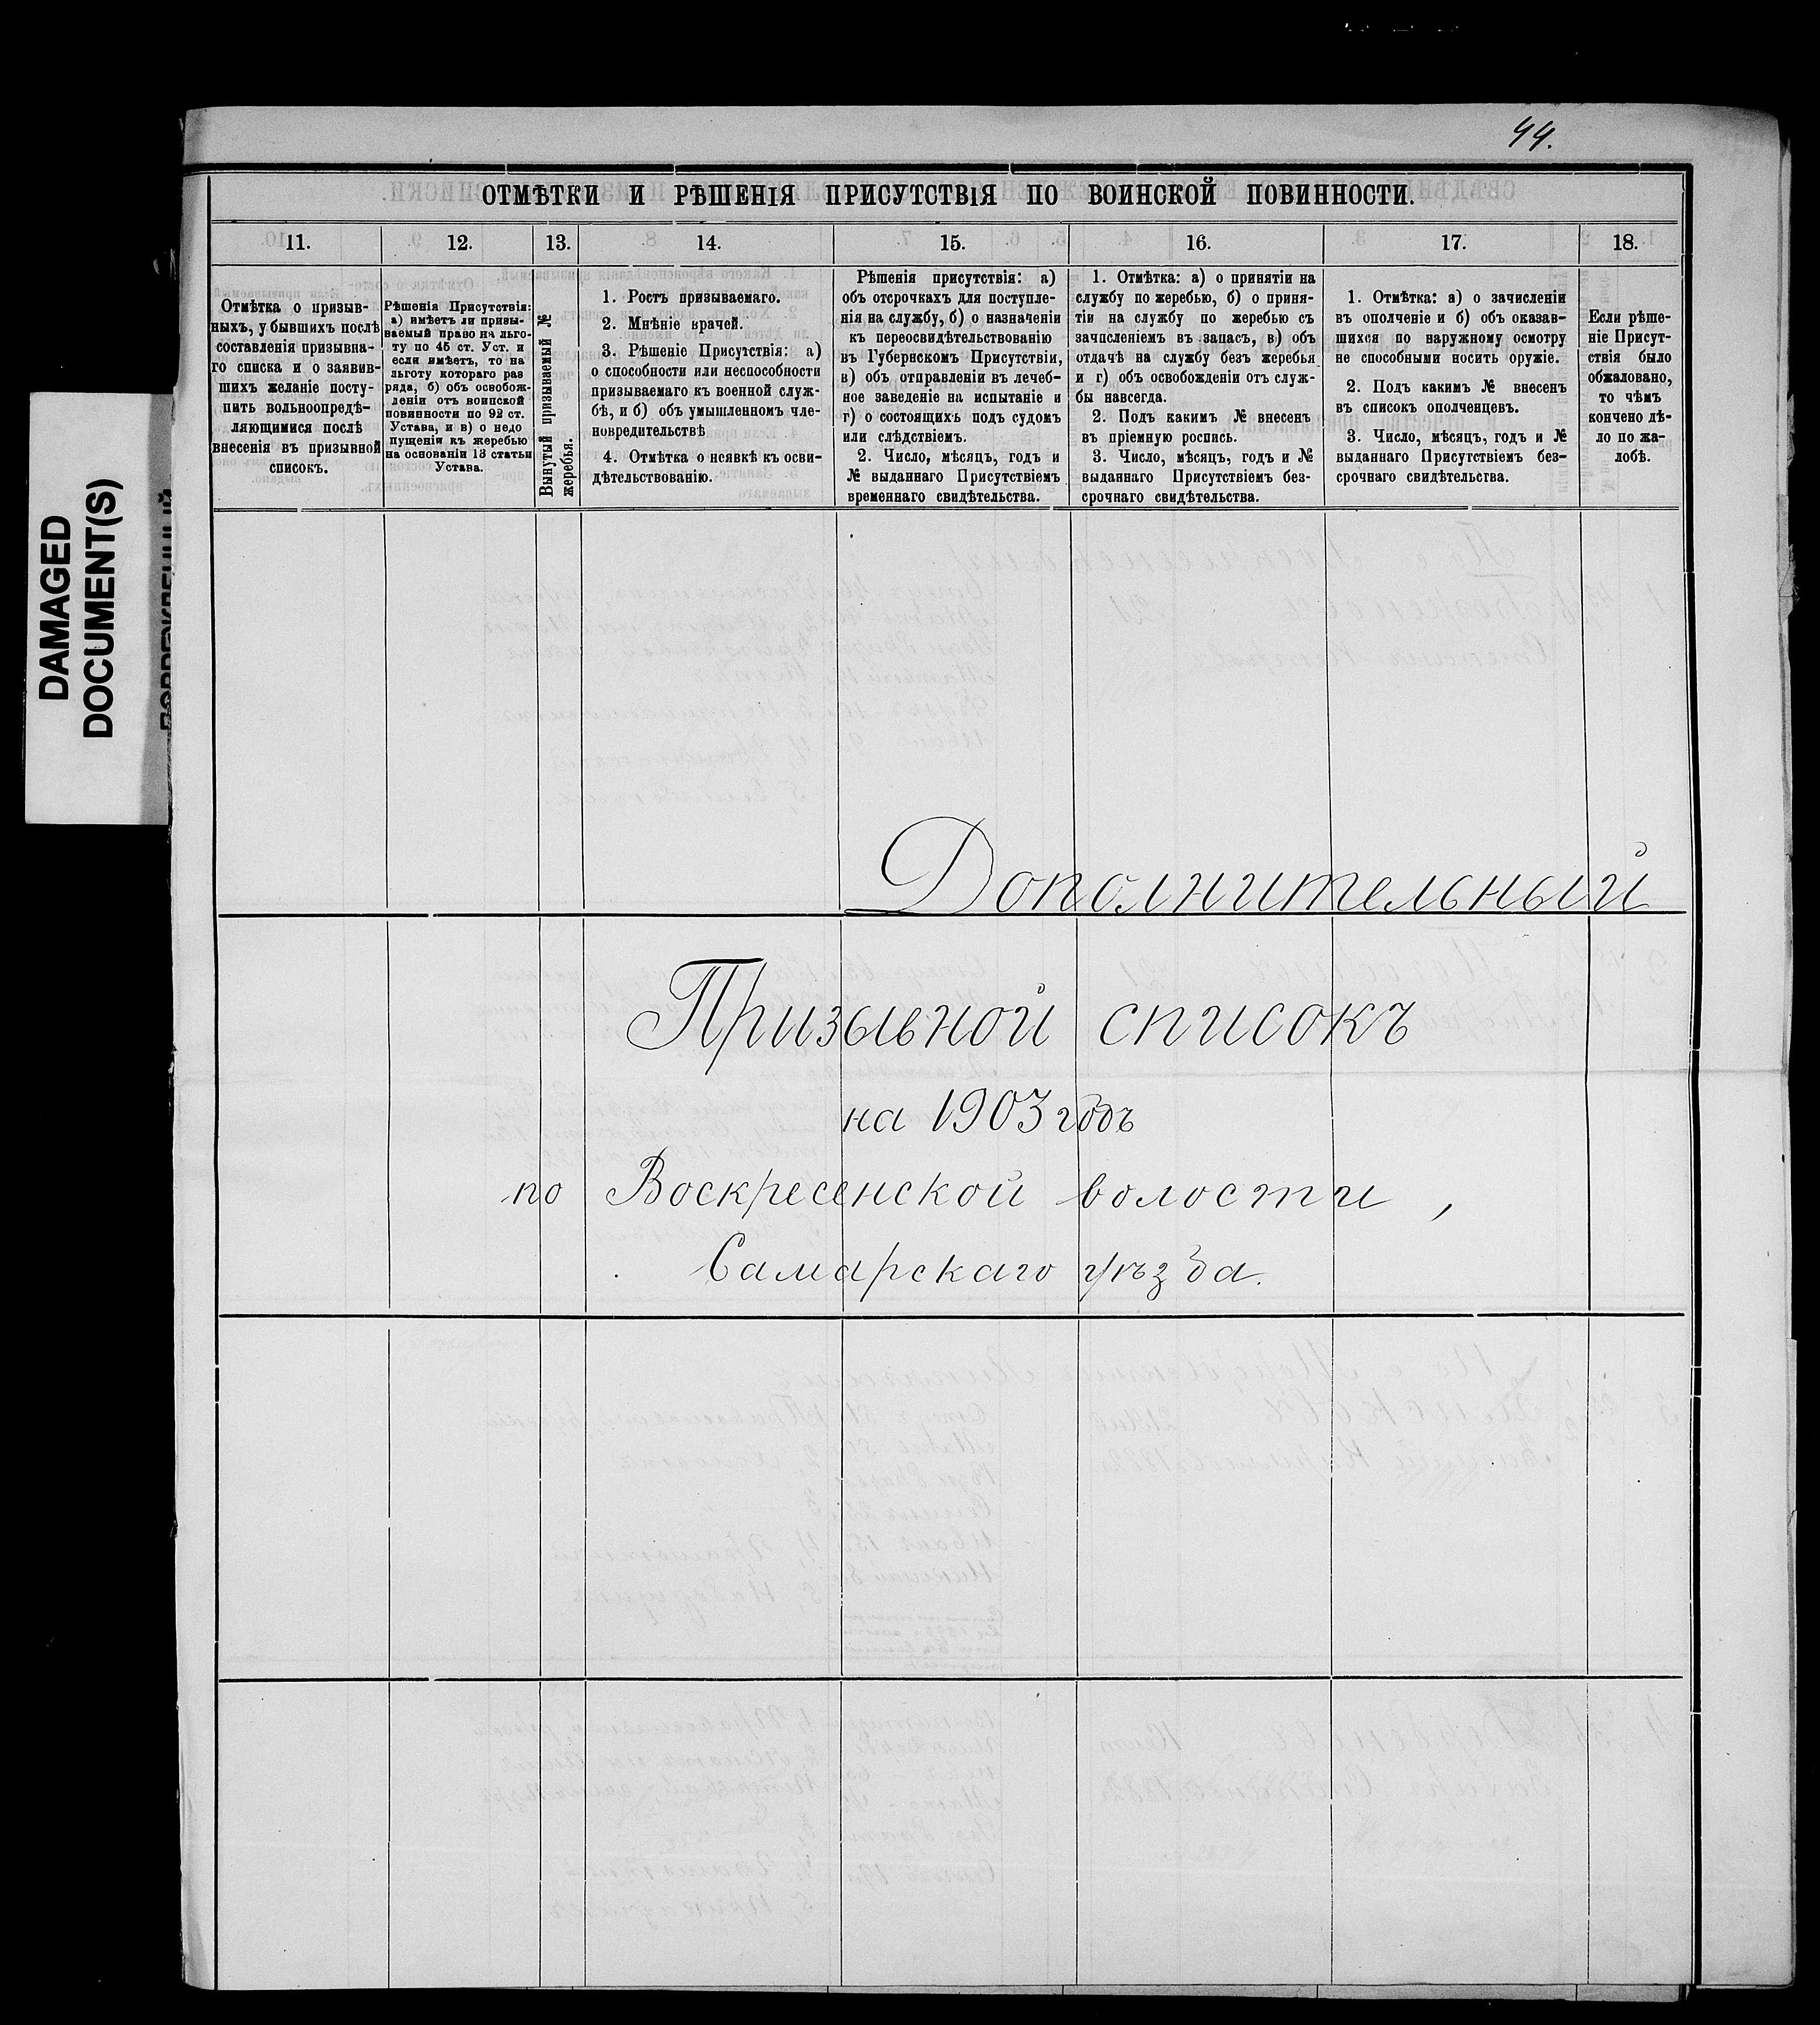 44.
DAMAGED
DOCUMENT(S)
ОТМѢТКИ И РѢШЕНІЯ ПРИСУТСТВІЯ ПО ВОИНСКОЙ ПОВИННОСТИ.
11. 12. 13. 14. 15. 16. 17. 18.
Отмѣтка о призыв-
ныхъ, у бывшихъ послѣ
составленія призывна-
го списка и о заявив-
шихъ желаніе посту-
пить вольноопредѣ-
ляющимися послѣ
внесенія въ призывной
списокъ.
Рѣшенія Присутствія:
а) имѣетъ ли призы-
ваемый право на льго-
ту по 45 ст. Уст. и
если имѣетъ, то на
льготу котораго раз
ряда, б) объ освобож-
деніи отъ воинской
повинности по 92 ст.
Устава, и в) о недо
пущеніи къ жеребью
на основаніи 13 статьи
Устава.
Вынутый призываемый №
жеребья.
1. Ростъ призываемаго.
2. Мнѣніе врачей.
3. Рѣшеніе Присутствія: а)
о способности или неспособности
призываемаго къ военной служ-
бѣ, и б) объ умышленномъ чле-
новредительствѣ
4. Отмѣтка о неявкѣ къ осви-
дѣтельствованію.
Рѣшенія присутствія: а)
объ отсрочкахъ для поступле-
нія на службу, б) о назначеніи
къ переосвидѣтельствованію
въ Губернскомъ Присутствіи,
в) объ отправленіи въ лечеб-
ное заведеніе на испытаніе и
г) о состоящихъ подъ судомъ
или слѣдствіемъ.
2. Число, мѣсяцъ, годъ и
№ выданнаго Присутствіемъ
временнаго свидѣтельства.
1. Отмѣтка: а) о принятіи на
службу по жеребью, б) о приня-
тіи на службу по жеребью съ
зачисленіемъ въ запасъ, в) объ
отдачѣ на службу безъ жеребья
и г) объ освобожденіи отъ служ-
бы навсегда.
2. Подъ какимъ № внесенъ
въ пріемную роспись.
3. Число, мѣсяцъ, годъ и №
выданнаго Присутствіемъ без-
срочнаго свидѣтельства.
1. Отмѣтка: а) о зачисленіи
въ ополченіе и б) объ оказав-
шихся по наружному осмотру
не способными носить оружіе.
2. Подъ какимъ № внесенъ
въ списокъ ополченцевъ.
3. Число, мѣсяцъ, годъ и №
выданнаго Присутствіемъ без-
срочнаго свидѣтельства.
Если рѣше-
ніе Присут-
ствія было
обжаловано,
то чѣмъ
кончено дѣ-
ло по жа-
лобѣ.
Дополнительный
Призывной списокъ
на 1903 годъ
по Воскресенской волости,
Самарскаго уѣзда.